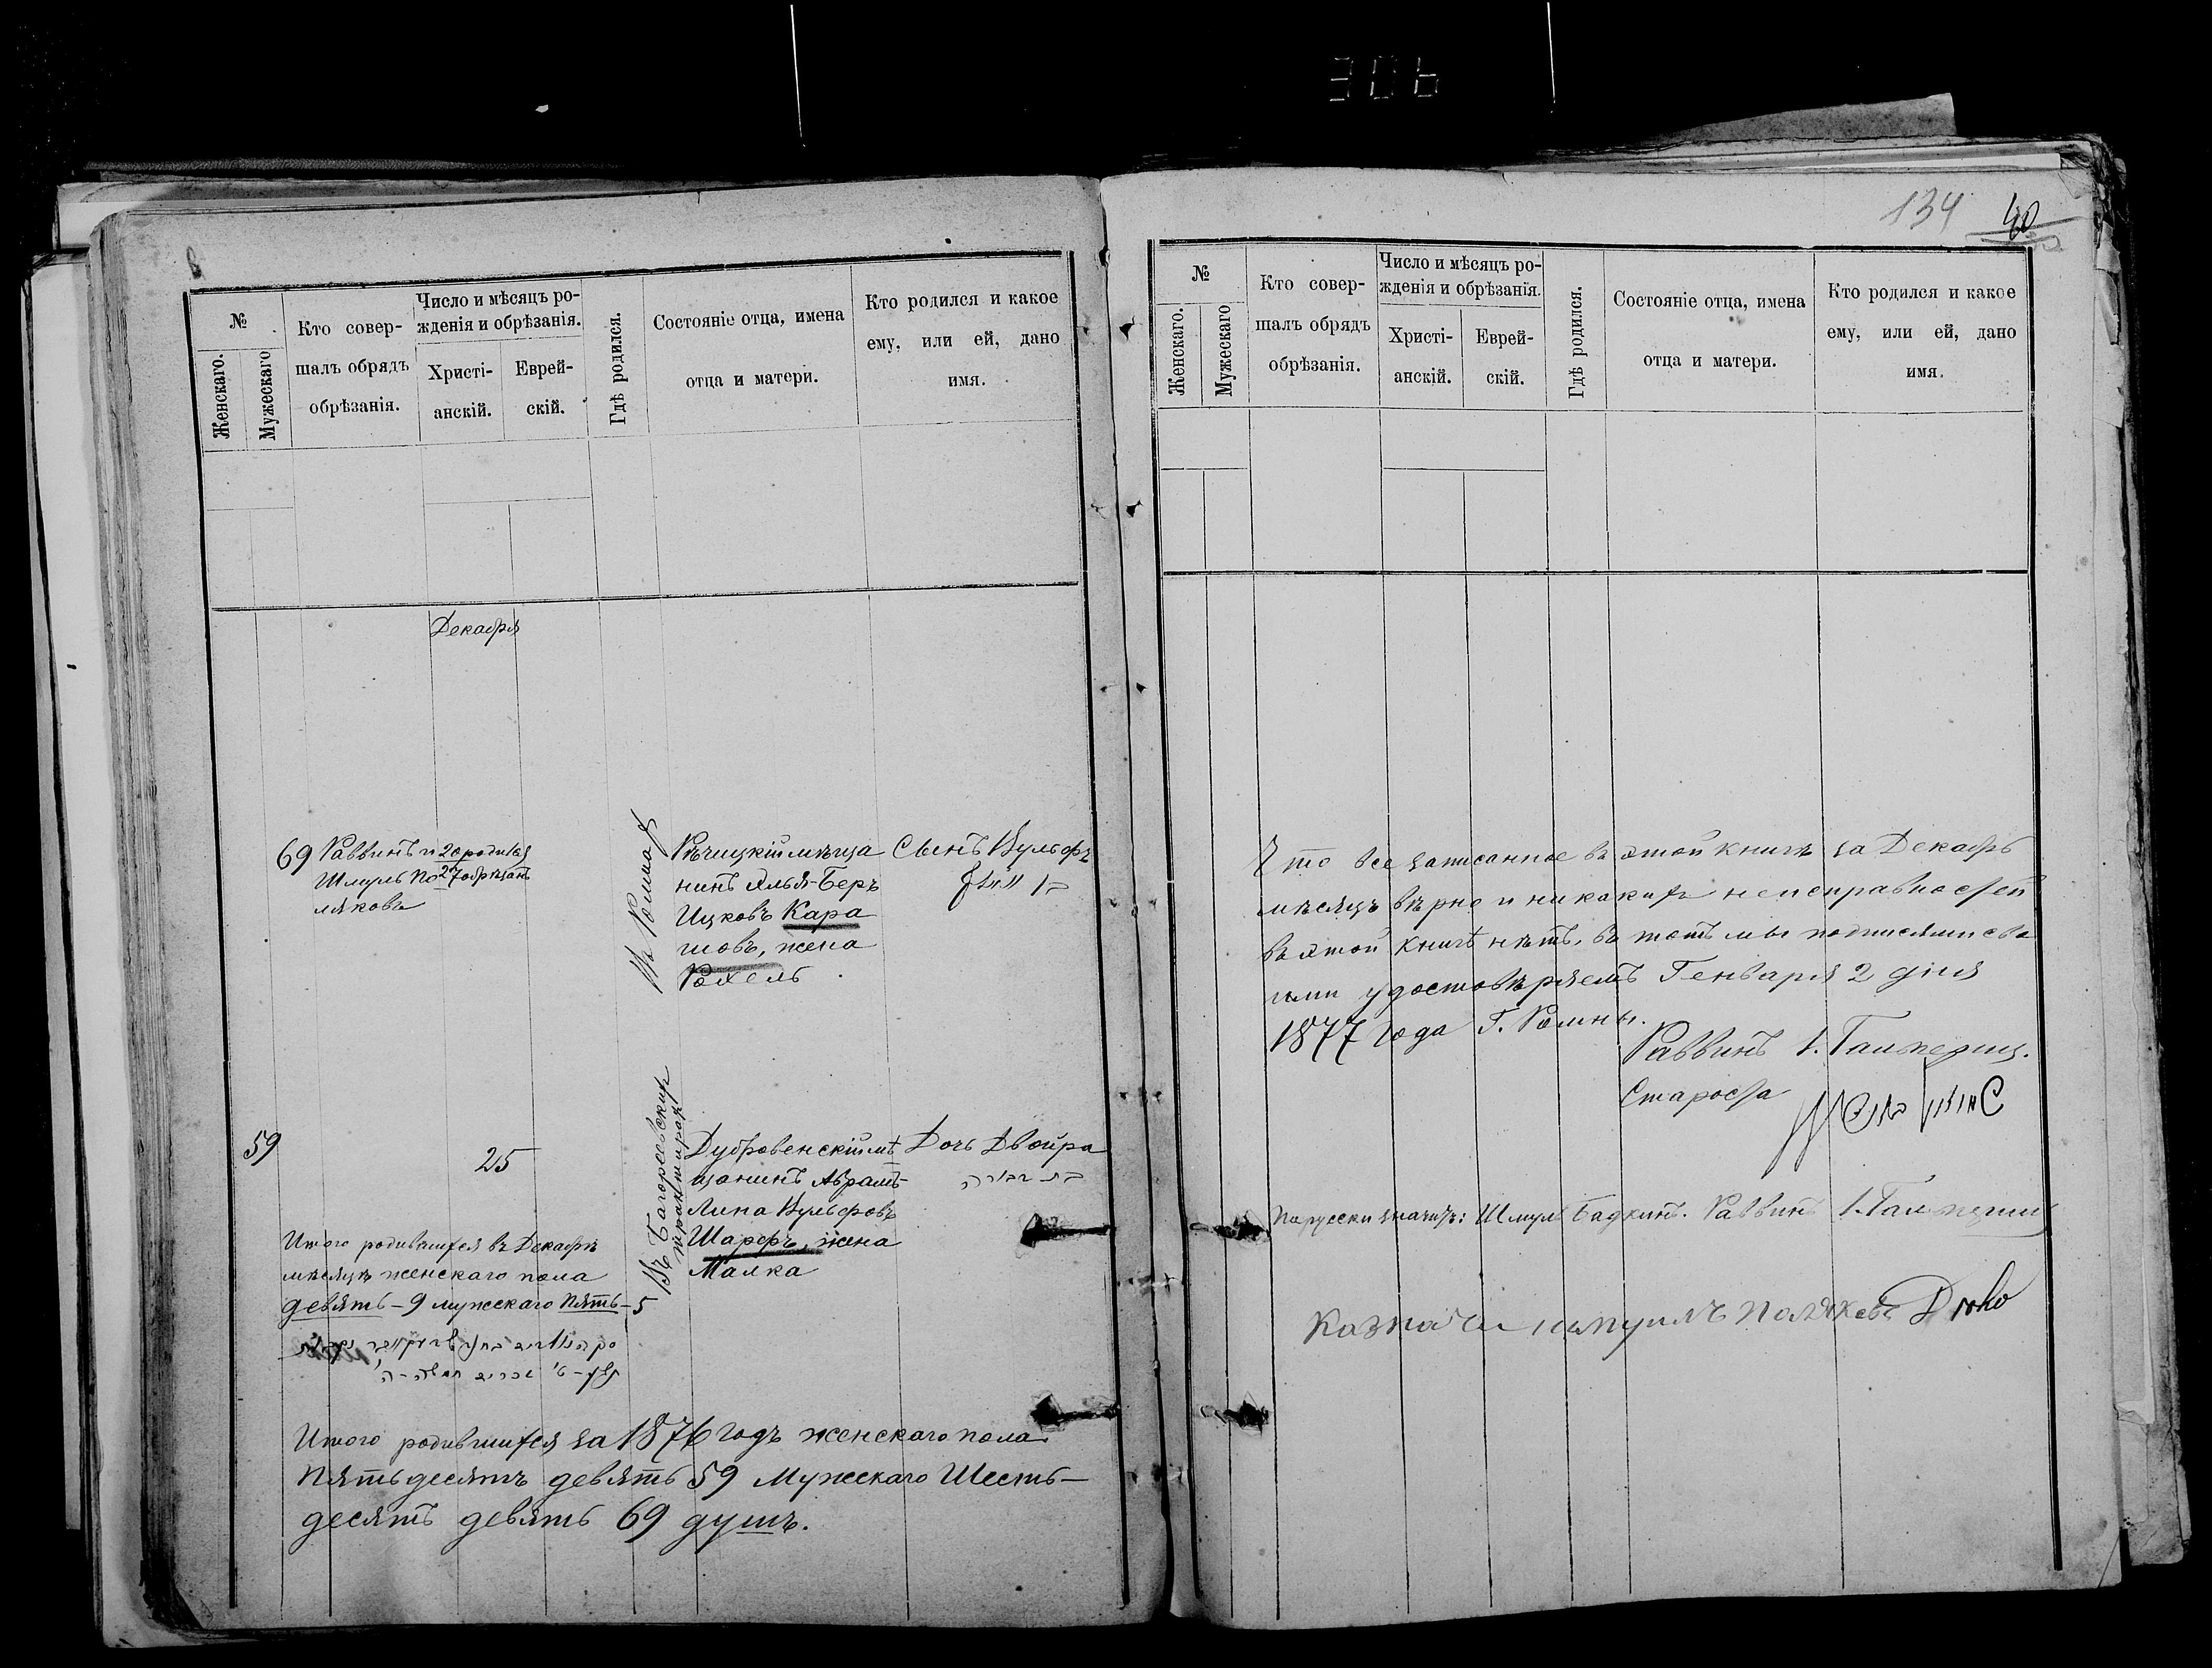 306
№
Женскаго.
Мужескаго
Кто совер-
шалъ обрядъ
обрѣзанія.
Число и мѣсяцъ ро-
жденія и обрѣзанія.
Христі-
анскій.
Еврей-
скій.
Гдѣ родился.
Состояніе отца, имена
отца и матери.
Кто родился и какое
ему, или ей, дано
имя.
Декабря
69
Раввинъ и
Шмуль По
ляковъ
20 родился
27 обрѣзанъ
Въ Ромнахъ
Рѣчицкій мѣща
нинъ Илья-Беръ
Ицковъ Кара
шовъ, жена
Рохель
Сынъ Вульфъ
בן וואלף
59
25
Въ Багореевскихъ
Дубровенскій мѣ
щанинъ Абрамъ-
Липа Вульфовъ
Шарфъ, жена
Малка
Дочь Двойра
בת דבורה
Итого родившихся въ Декабрѣ
мѣсяцѣ женскаго пола
девять - 9 мужескаго пять - 5
Итого родившихся за 1876 годъ женскаго пола
пятьдесятъ девять 59 Мужескаго Шесть-
десятъ девять 69 душъ.
134
40
№
Женскаго.
Мужескаго
Кто совер-
шалъ обрядъ
обрѣзанія.
Число и мѣсяцъ ро-
жденія и обрѣзанія.
Христі-
анскій.
Еврей-
скій.
Гдѣ родился.
Состояніе отца, имена
отца и матери.
Кто родился и какое
ему, или ей, дано
имя.
Что все записанное въ этой книгѣ за Декабрь
мѣсяцъ вѣрно и никакихъ неисправностей
въ этой книгѣ нѣтъ, въ томъ мы подписями сво
ими удостовѣряемъ Генваря 2 дня
1877 года Г. Ромны.
Раввинъ І.
Староста
Порусски значитъ: Шмуль Бадкинъ. Раввинъ І.
Казначи Поляковъ